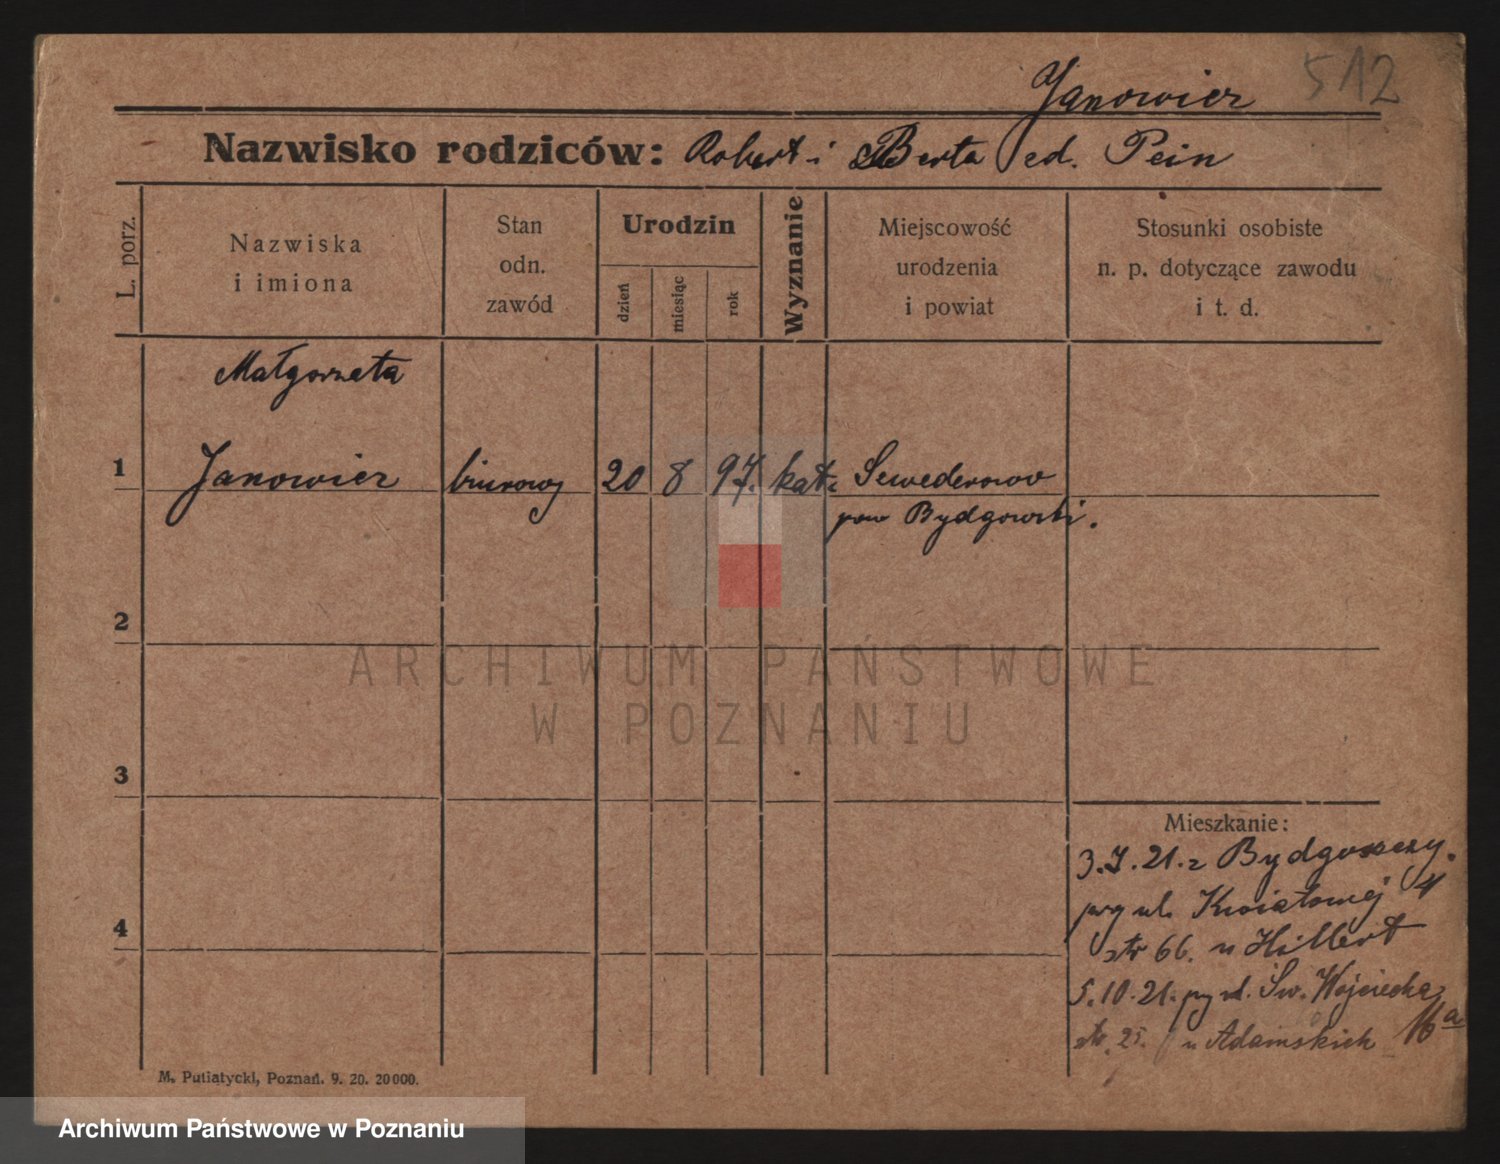 Janowicz 512
Nazwisko rodziców: Robert i Berta ed. Pein
L. porz.
Nazwiska
i imiona
Stan
odn.
zawód
Urodzin
dzień
miesiąc
rok
Wyznanie
Miejscowość
urodzenia
i powiat
Stosunki osobiste
n. p. dotyczące zawodu
i t. d.
Małgorzata
1 Janowicz biurowy 20 8 97. kat.
pow Bydgowski.
2
ARCHIWUM PAŃSTWOWE
W POZNANIU
3
Mieszkanie:
3.7.21. z Bydgoszczy.
przy ul. Kwiatowej 4
str 66. u Hillert
4
5.10.21. przy ul. Św. Wojciecha
str. 25. u Adamskich 16a
M. Putiatycki, Poznań. 9. 20. 20000.
Archiwum Państwowe w Poznaniu